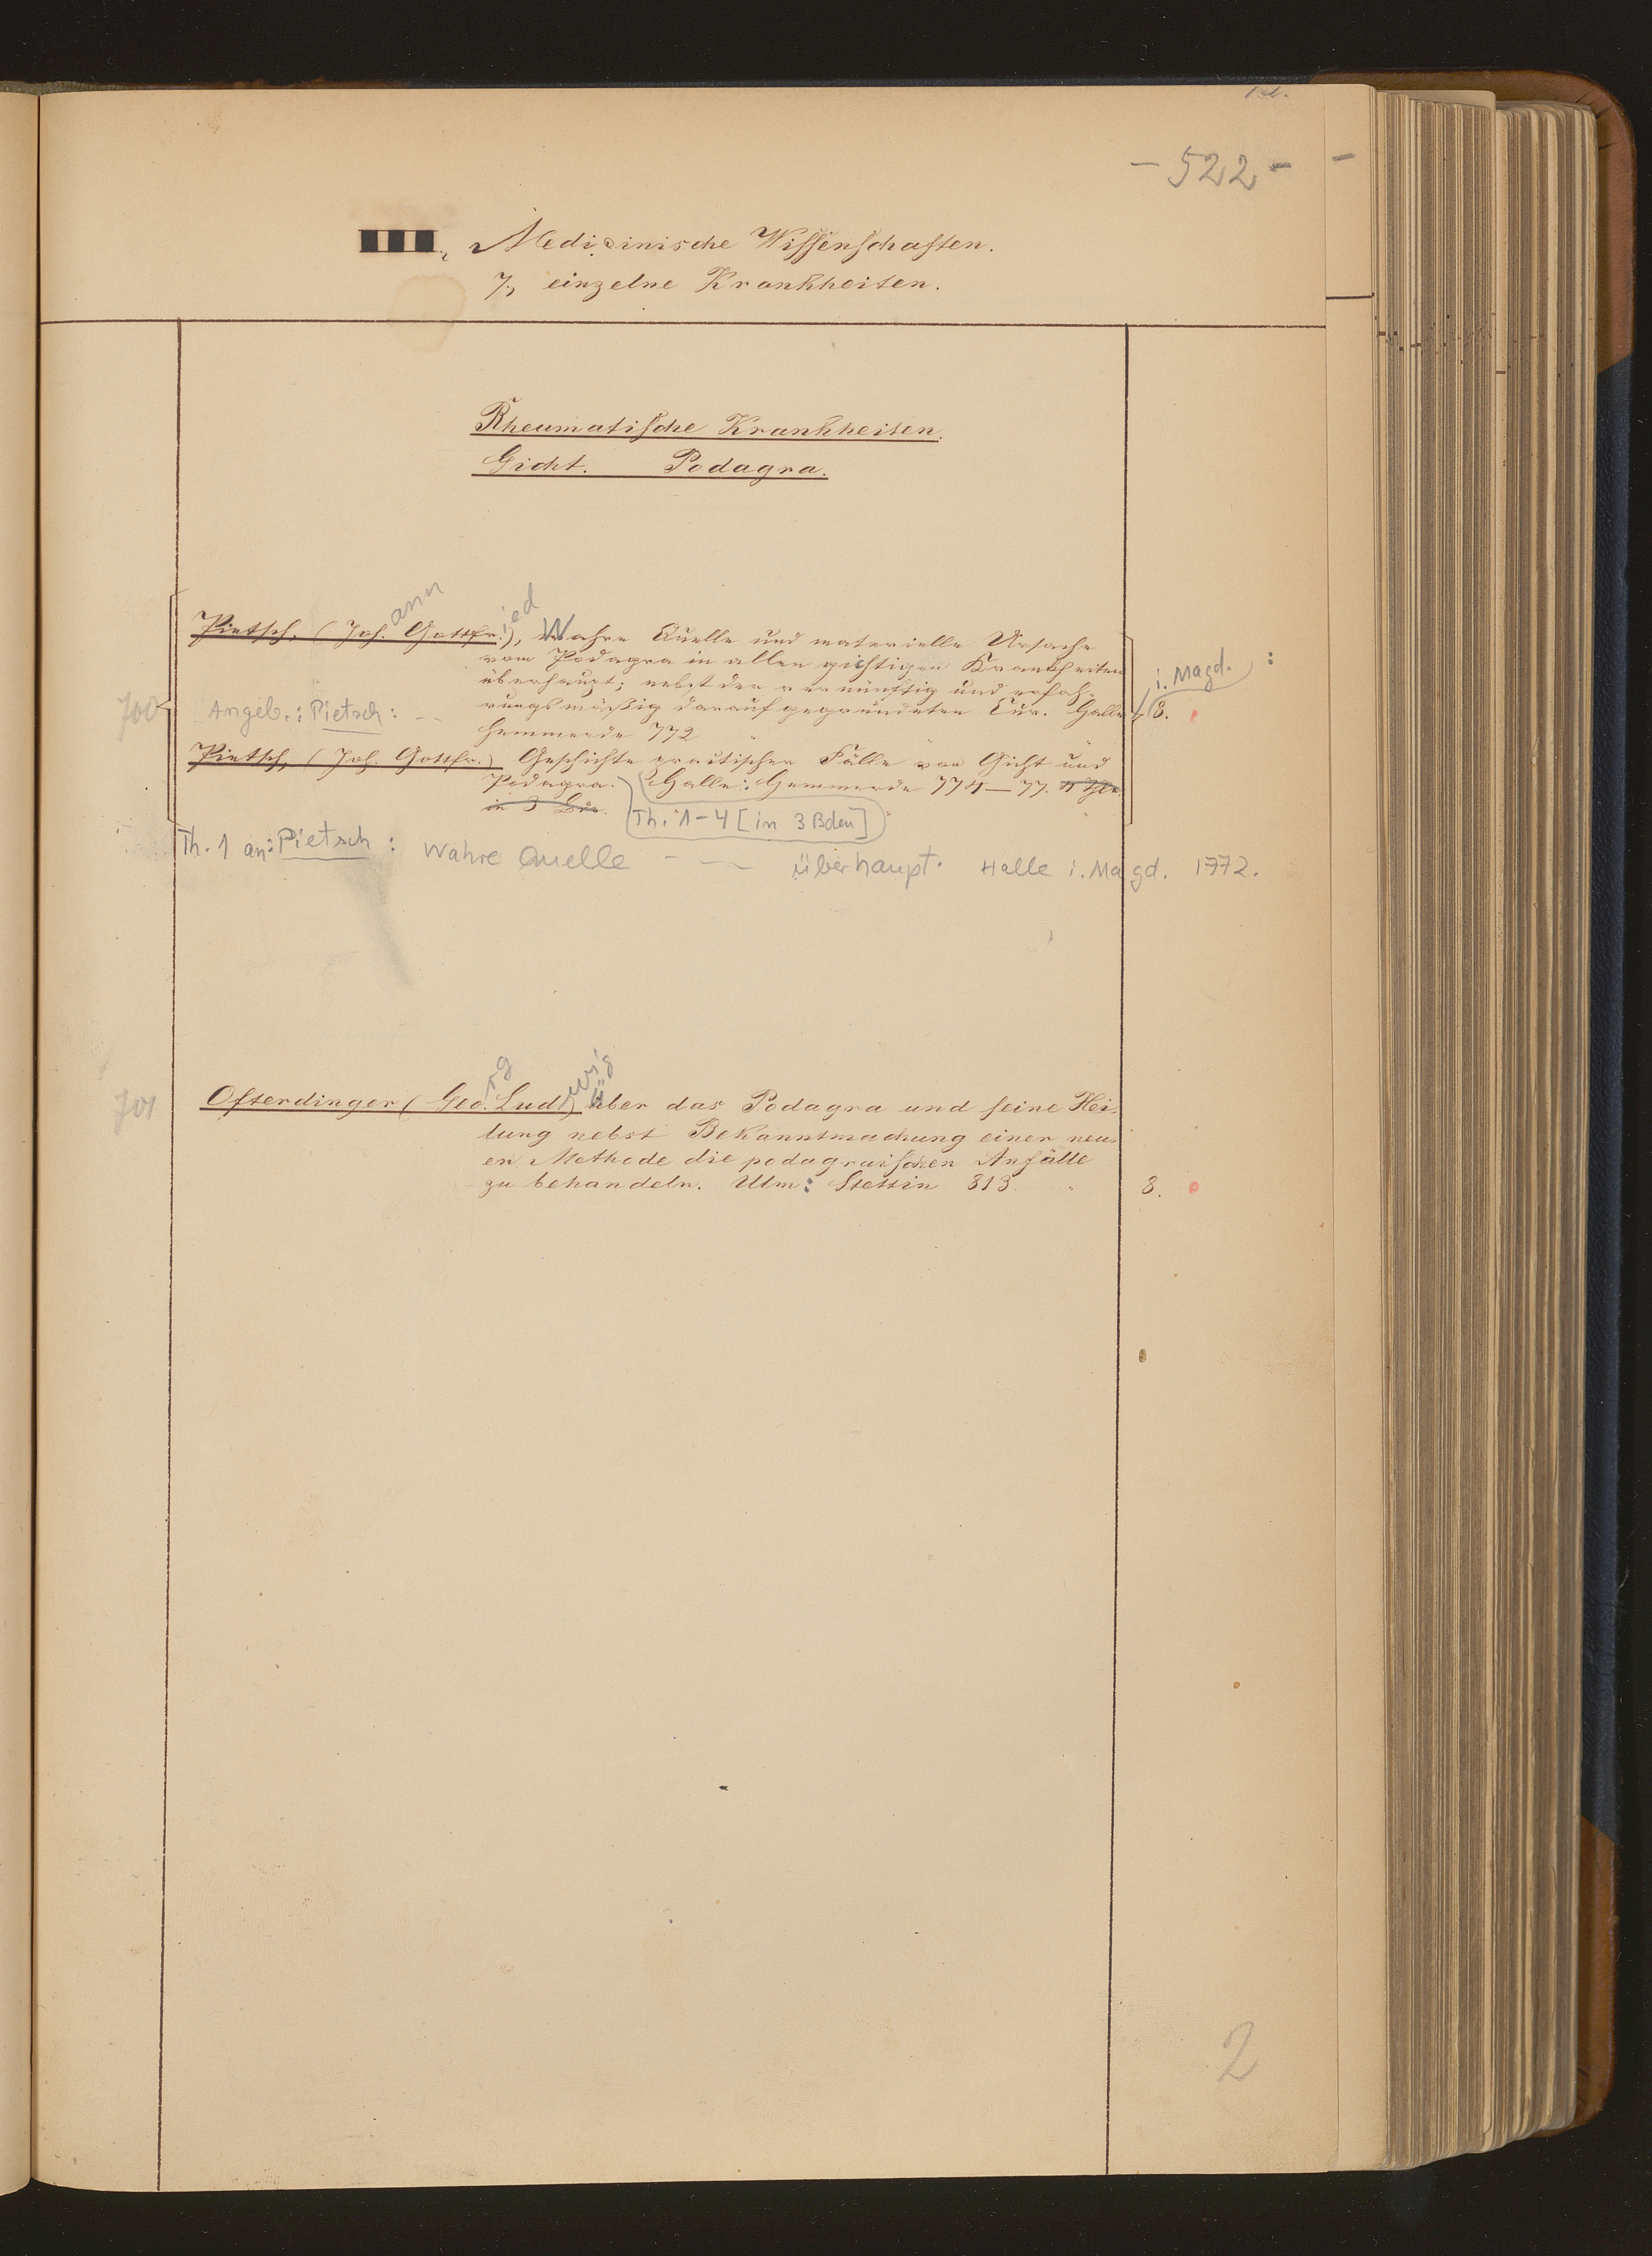 - 522 -
Medicinische Wissenschaften.
7., einzelne Krankheiten.
Rheumatische Krankheiten.
Gicht. Podagra.
Pietsch, (Joh.ann Gottfr.ied), Wahre Quelle und materielle Ursache
vom Podagra in allen gichtigen Krankheiten
überhaupt; nebst der vernünftig und erfah-
i. Magd. :
700 Angeb.: Pietsch: - - rungsmäßig darauf gegründeten Cur. Halle 8.
Hemmerde 772
Pietsch, (Joh. Gottfr.) Geschichte practischer Fälle von Gicht und
Podagra. Halle: Hemmerde 774—77. 4 Thle
in 3 Bde.
Th. 1-4 [in 3 Bden]
Th. 1 an: Pietsch: Wahre Quelle - — überhaupt. Halle i. Magd. 1772.
701 Ofterdinger (Geo.rg Lud.wig) über das Podagra und seine Hei-
lung nebst Bekanntmachung einer neu-
en Methode die podagraischen Anfälle
zu behandeln. Ulm: Stettin 813 8.
2